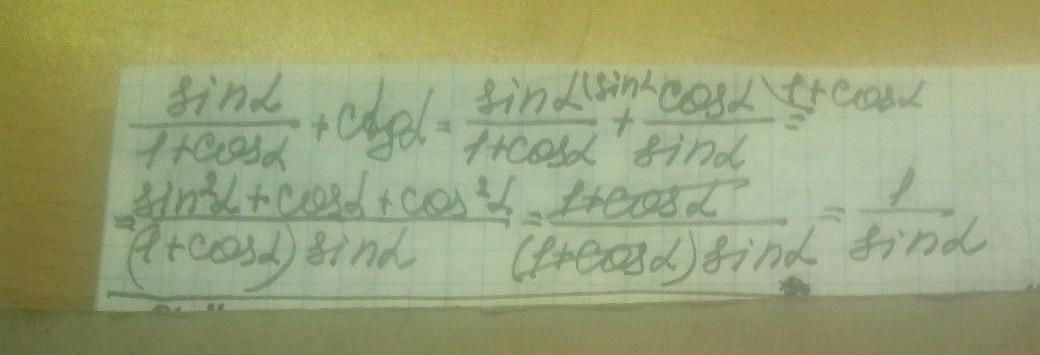 sinα/(1+cosα) + ctgα = sinα\sinα/(1+cosα) + cosα\1+cosα/sinα =
= (sin²α + cosα + cos²α)/((1+cosα) sinα) = (1+cosα)/((1+cosα) sinα) = 1/sinα